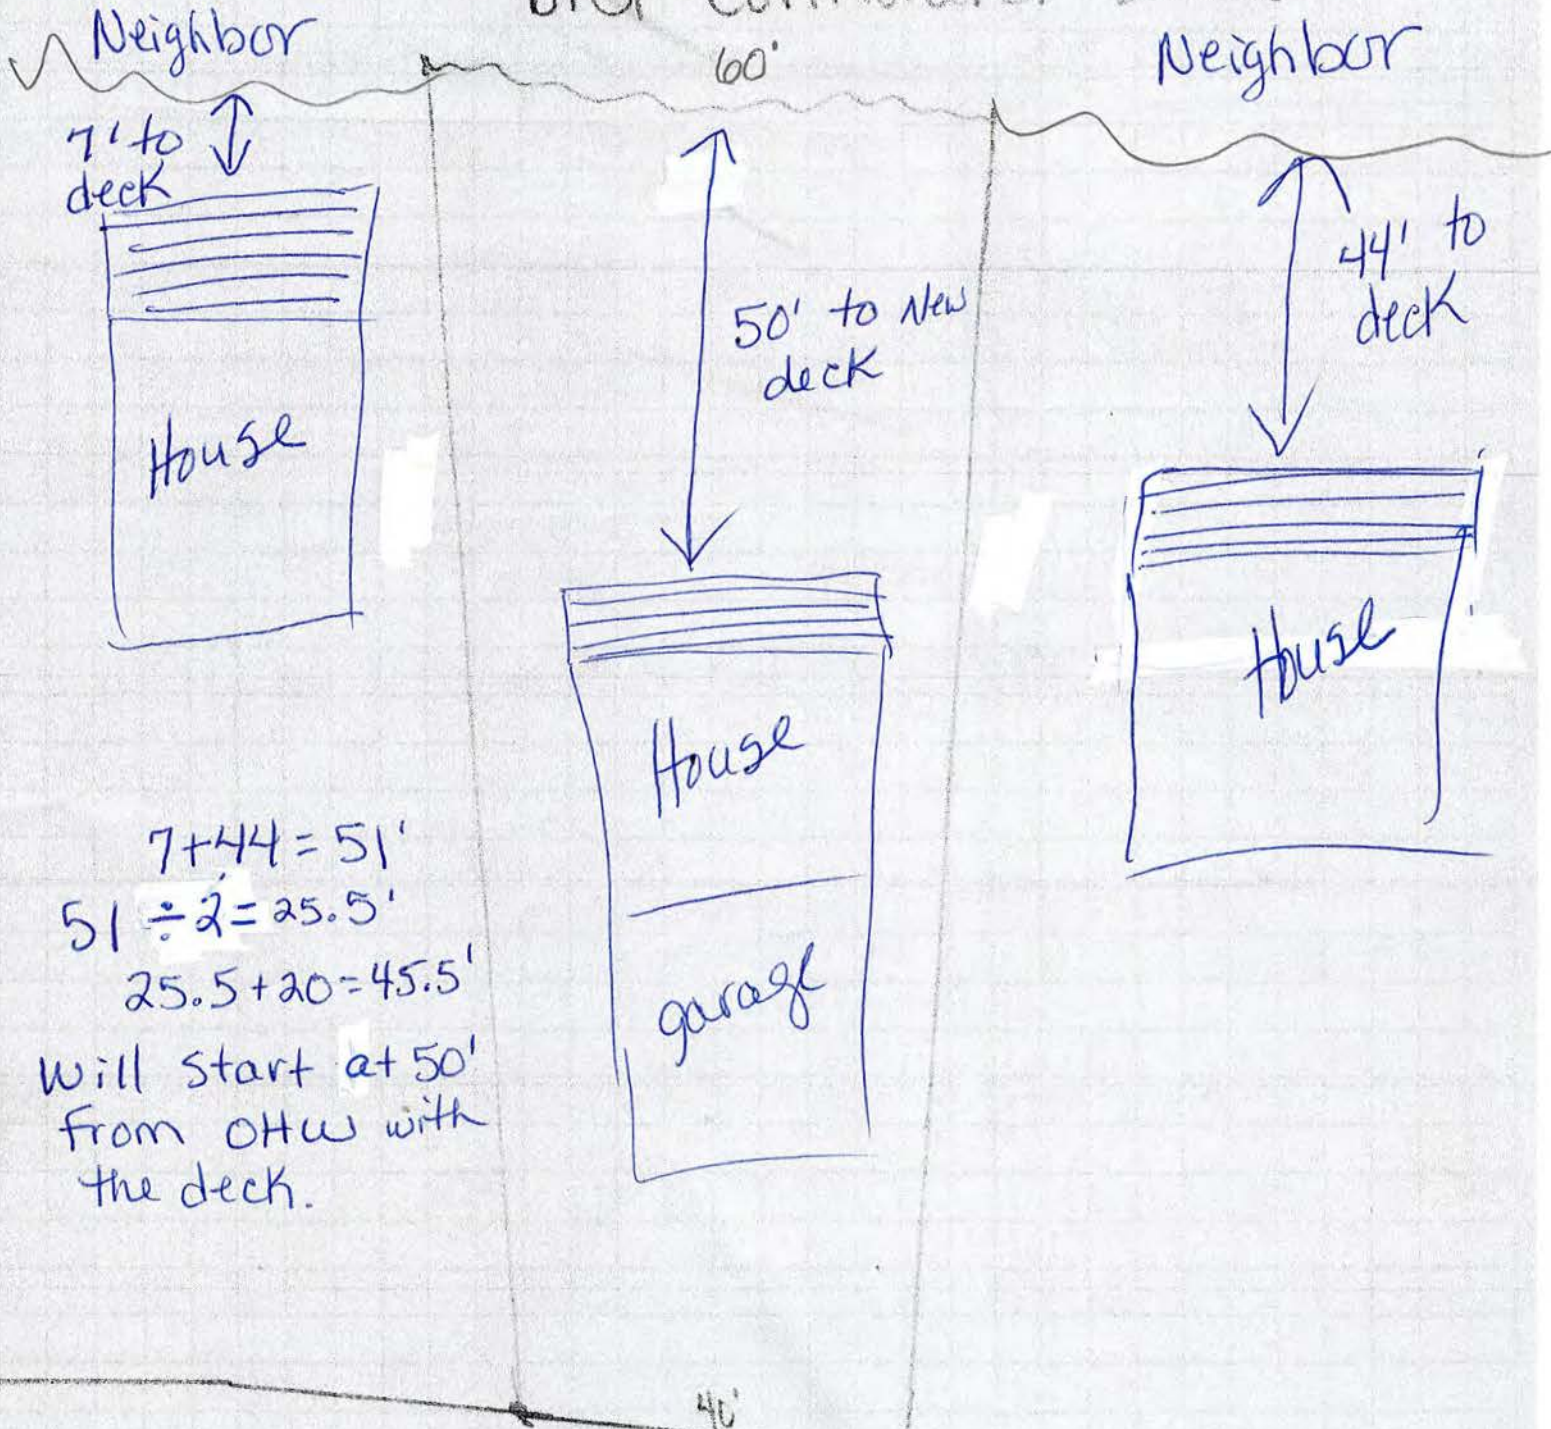 Neighbor
60'
Neighbor
7' to
deck
50' to New
deck
44' to
deck
House
House
House
garage
7+44=51'
51 ÷ 2 = 25.5'
25.5+20=45.5'
Will start at 50'
from OHW with
the deck.
40'